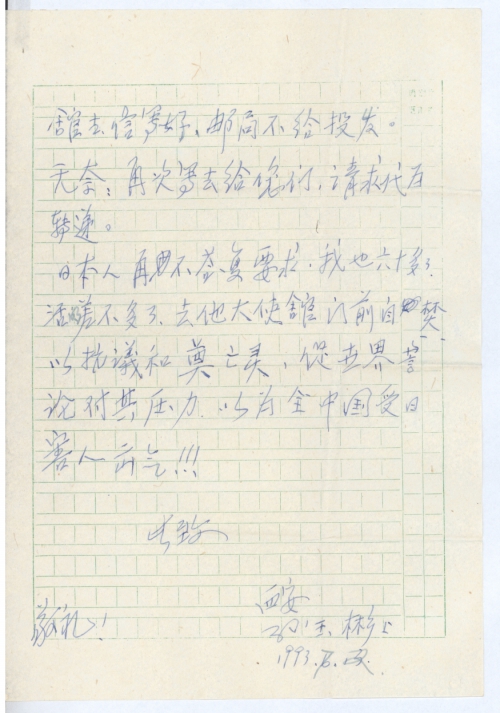 馆去信写好、邮局不给投发。
无奈：再次写去给您们，请求代为
转递。
日本人再要不答复要求，我也六十多了
活差不多了，去他大使馆门前自焚
以抗议和奠亡灵，促世界
论对其压力，以为全中国受日
害人出气!!!
此致
敬礼！
西安
王彬
1993.